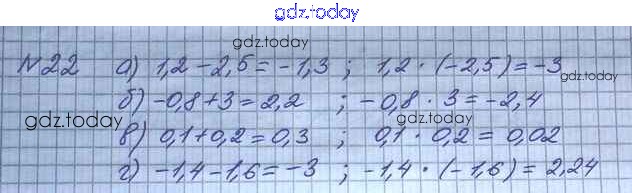 gdz.today
gdz.today
№22 а) 1,2 - 2,5 = -1,3 ; 1,2 · (-2,5) = -3
gdz.today
б) -0,8 + 3 = 2,2 ; -0,8 · 3 = -2,4
gdz.today
в) 0,1 + 0,2 = 0,3 ; 0,1 · 0,2 = 0,02
г) -1,4 - 1,6 = -3 ; -1,4 · (-1,6) = 2,24
gdz.today